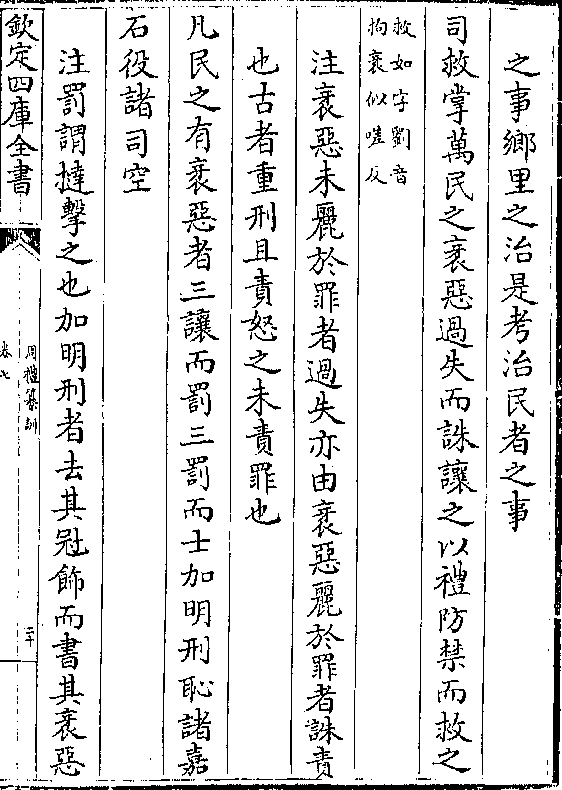 之事鄉里之治是考治民者之事
司救掌萬民之衺惡過失而誅讓之以禮防禁而救之
救如字劉音
拘衺似嗟反
注衺惡未麗於罪者過失亦由衺惡麗於罪者誅責
也古者重刑且責怒之未責罪也
凡民之有衺惡者三讓而罰三罰而士加明刑恥諸嘉
石役諸司空
注罰謂撻擊之也加明刑者去其冠飾而書其衺惡
欽定四庫全書
周禮纂訓
卷七
二十